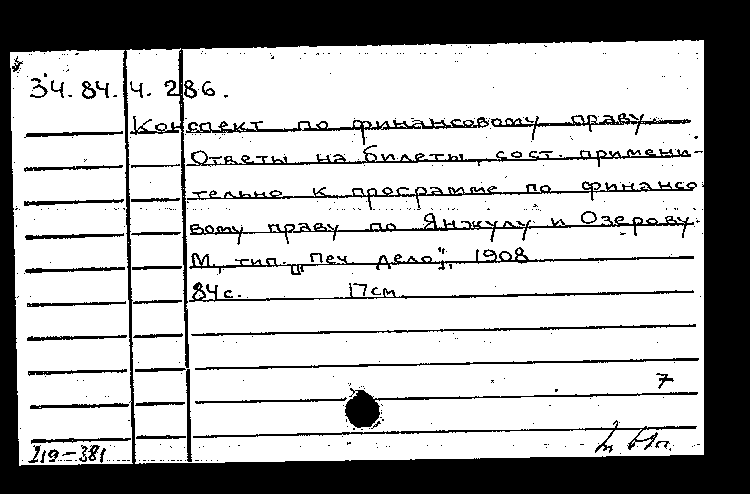 34.84.4.286.
Конспект по финансовому праву.
Ответы на билеты, сост. примени-
тельно к программе по финансо
вому праву по Янжулу и Озерову.
М., тип. „Печ. дело", 1908
84с. 17см.
7
219-381